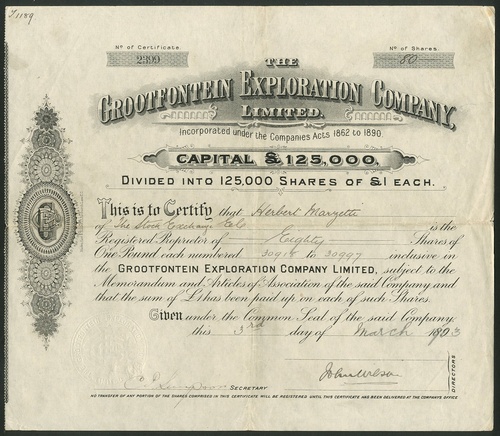 T1189
No of Certificate.
2399
No of Shares.
80
THE
GROOTFONTEIN EXPLORATION COMPANY,
LIMITED.
Incorporated under the Companies Acts 1862 to 1890.
CAPITAL £125,000.
DIVIDED INTO 125,000 SHARES OF £1 EACH.
This is to Certify that Herbert Marzetti
of The Stock Exchange is the
Registered Proprietor of Eighty Shares of
One Pound each numbered to 30997 inclusive in
the GROOTFONTEIN EXPLORATION COMPANY LIMITED, subject to the
Memorandum and Articles of Association of the said Company and
that the sum of £1 has been paid up on each of such Shares.
Given under the Common Seal of the said Company,
this 3rd day of March 1903
SECRETARY
John Wilson
DIRECTORS
NO TRANSFER OF ANY PORTION OF THE SHARES COMPRISED IN THIS CERTIFICATE WILL BE REGISTERED UNTIL THIS CERTIFICATE HAS BEEN DELIVERED AT THE COMPANY'S OFFICE